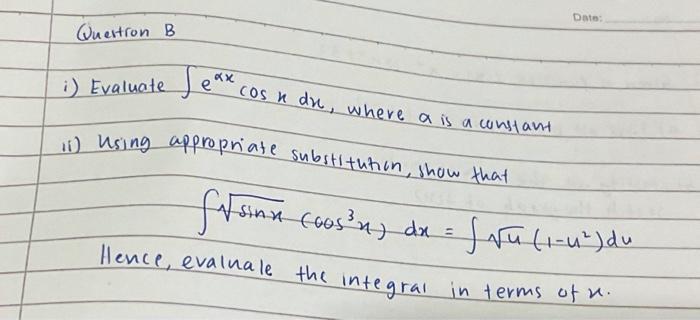 Date:
Question B
i) Evaluate ∫ e^αx cos x dx, where α is a constant
ii) Using appropriate substitution, show that
∫ √sinx (cos³x) dx = ∫ √u (1-u²) du
Hence, evaluale the integral in terms of x.